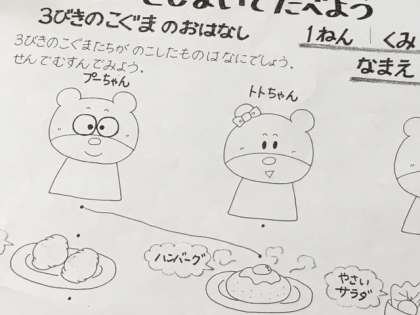 たべよう
3びきのこぐま のおはなし
1ねん くみ
なまえ
3びきのこぐまたちが のこしたものは なにでしょう.
せんで むすんでみよう.
プーちゃん
トトちゃん
ハンバーグ
やさい
サラダ